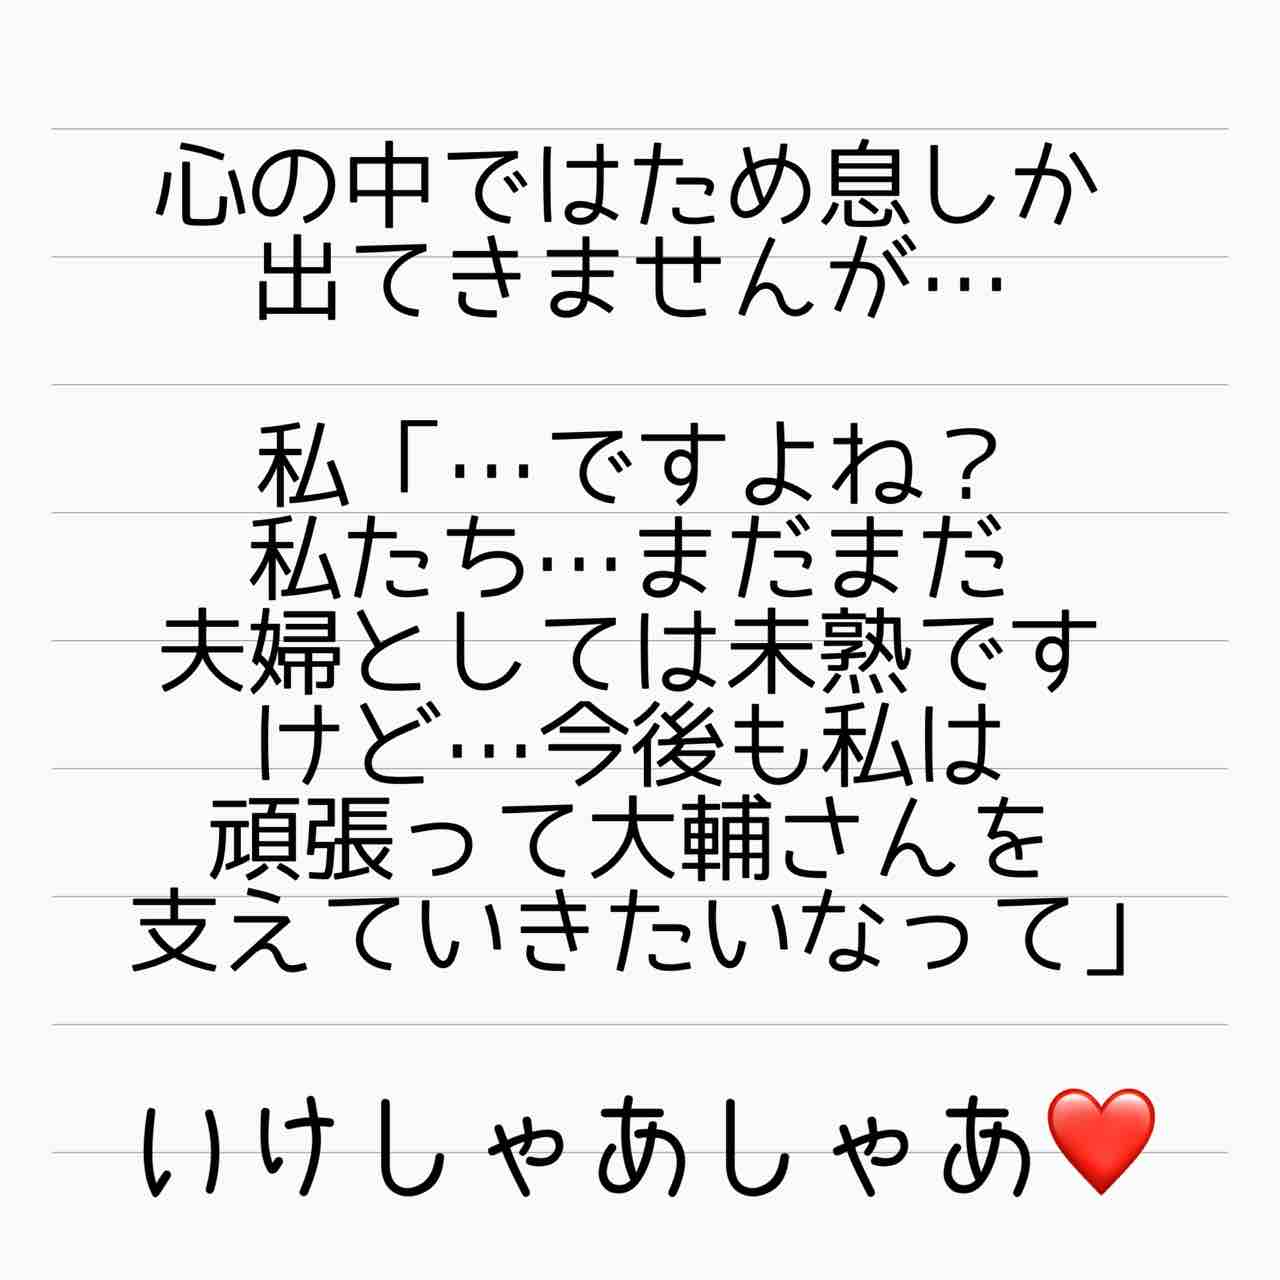 心の中ではため息しか
出てきませんが…
私「…ですよね？
私たち…まだまだ
夫婦としては未熟です
けど…今後も私は
頑張って大輔さんを
支えていきたいなって」
いけしゃあしゃあ❤️